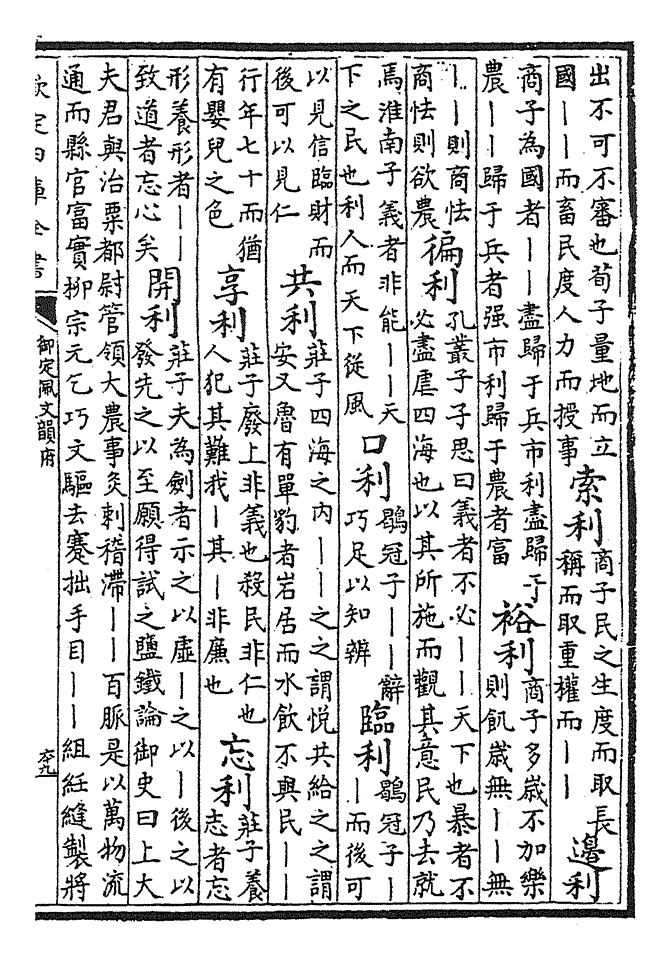 出不可不審也荀子量地而立
國丨丨而畜民度人力而授事
索利
商子民之生度而取長
稱而取重權而丨丨
邊利
商子為國者丨丨盡歸于兵市利盡歸于
農丨丨歸于兵者强市利歸于農者富
裕利
商子多歲不加樂
則飢歲無丨丨無
丨丨則商怯
商怯則欲農
徧利
孔叢子子思曰義者不必丨丨天下也暴者不
必盡虐四海也以其所施而觀其意民乃去就
焉淮南子義者非能丨丨天
下之民也利人而天下從風
口利
鶡冠子丨丨辭
巧足以知辨
臨利
鶡冠子丨
丨而後可
以見信臨財而
後可以見仁
共利
莊子四海之内丨丨之之謂悦共給之之謂
安又魯有單豹者岩居而水飲不與民丨丨
行年七十而猶
有嬰兒之色
享利
莊子廢上非義也殺民非仁也
人犯其難我丨其丨非廉也
忘利
莊子養
志者忘
形養形者丨丨
致道者忘心矣
開利
莊子夫為劍者示之以虛丨之以丨後之以
發先之以至願得試之鹽鐵論御史曰上大
夫君與治粟都尉管領大農事灸刺稽滯丨丨百脈是以萬物流
通而縣官富實柳宗元乞巧文驅去蹇拙手目丨丨組紝縫製將
欽定四庫全書
御定佩文韻府
六九